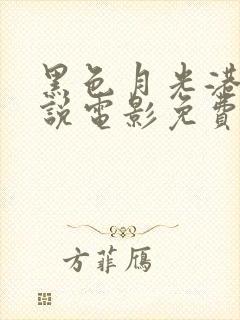 黑色月光港
說電影免費
方菲雁